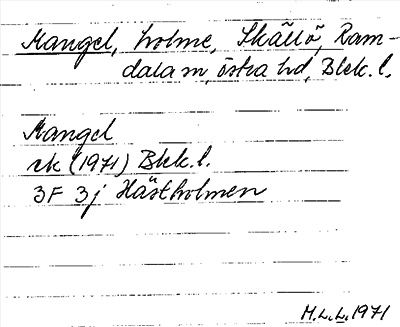 Mangel, holme, Skällö, Ram-
dala sn, östra hd, Blek. l.
Mangel
ek (1971) Blek. l.
3F 3j Hästholmen
M.L.L. 1971